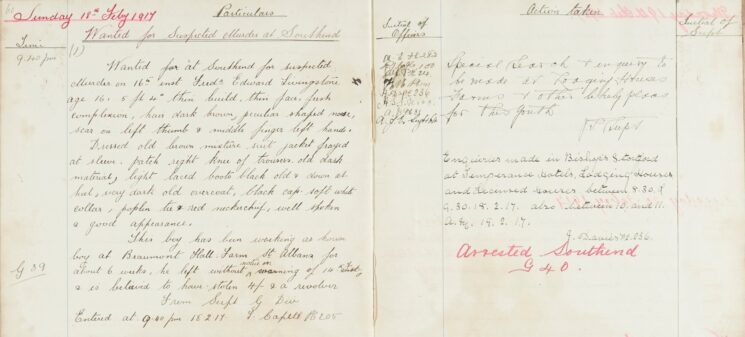 Sunday 18th Feby 1917
Particulars
Wanted for Suspected Murder at Southend
Time
9.40 pm
(1)
Wanted for at Southend for suspected
Murder on 16th inst Fredk Edward Livingstone
age 16. 5 ft 4in thin build, thin face fresh
complexion, hair dark brown, peculiar shaped nose,
scar on left thumb & middle finger left hand.
Dressed old brown mixture suit jacket frayed
at sleeve. patch right knee of trousers old dark
material, light laced boots black old & down at
heel, very dark old overcoat, black cap soft white
collar, poplin tie & red neckerchief, well spoken
& good appearance.
This boy has been working as house
boy at Beaumont Hall Farm St Albans for
about 6 weeks, he left without notice on morning of 14th Inst,
& is believed to have stolen 4/- & a revolver
From Supt G Div
Entered at 9.40 pm 18 2 17 Capell PS 205
G 39
Action taken
Initial of
Officers
Initial of
Supt
Special Search & enquiry to
be made at Lodging Houses
Farms & other likely places
for this youth
Supt
Enquiries made in Bishops Stortford
at Temperance Hotels, Lodging Houses
and Licensed Houses between 8.30 &
9.30. 18. 2. 17. also between 10. and 11.
19. 2. 17.
J. Davies PC 236.
Arrested Southend
G 40.